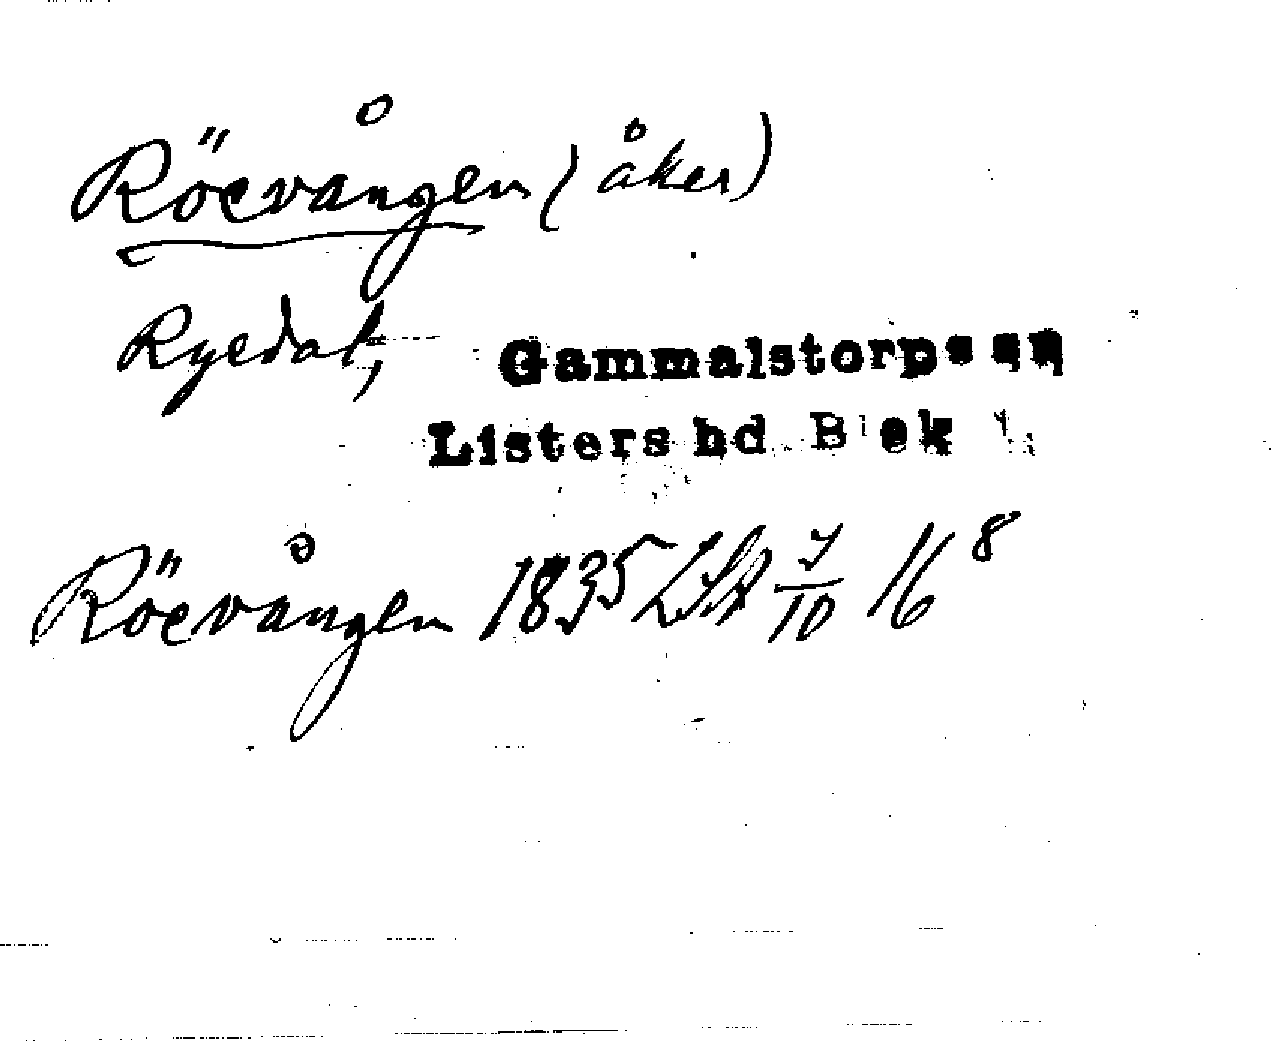 Röevången (åker)
Ryedal, Gammalstorps sn
Listers hd Blek
Röevången 1835 LSA 7/10 16⁸